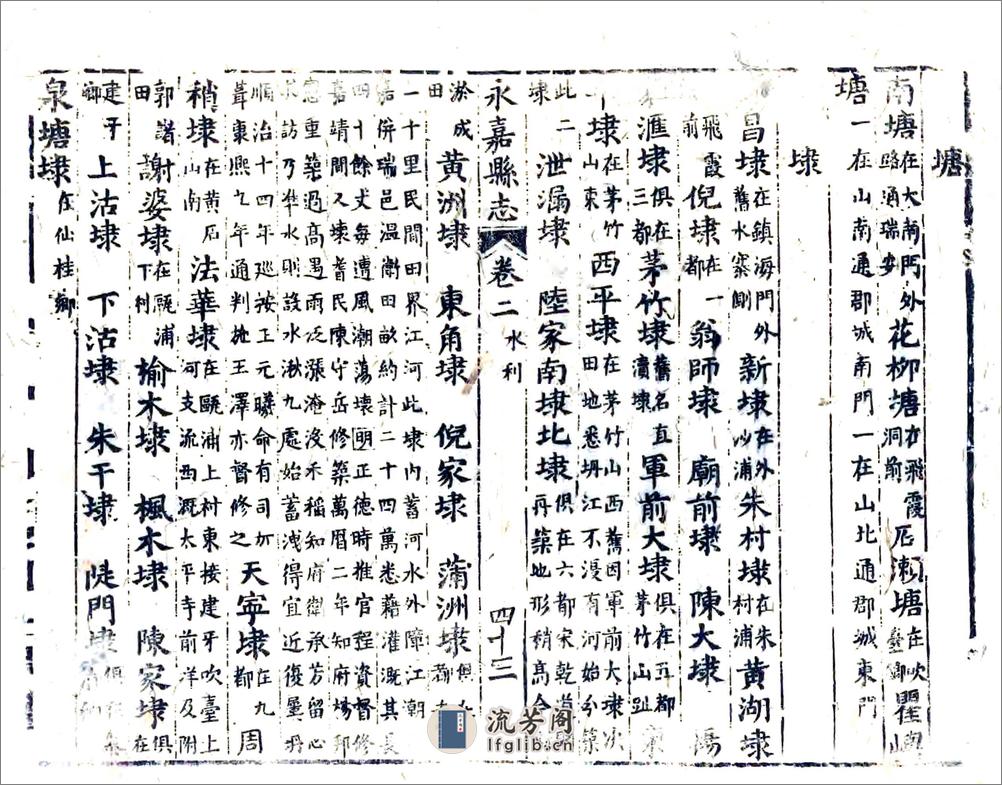 塘
南塘在大南門外路通瑞安花柳塘在飛霞洞前瀨塘在吹臺鄉瞿嶼
塘一在山南通郡城南門一在山北通郡城東門
埭
昌埭在鎮海門外舊水寨側新埭在外沙浦朱村埭在朱村浦黃湖埭
飛霞前倪埭在一都翁師埭 廟前埭 陳大埭 楊
滙埭俱在三都茅竹埭舊名直瀆埭軍前大埭俱在五都茅竹山趾東
埭在茅竹山東西平埭在茅竹山西舊因軍前大埭次田地悉坍江不浸有河始分築
此二埭泄漏埭 陸家南埭北埭俱在六都宋乾道再築地形稍高今
永嘉縣志 卷二 水利 四十三
淤成田黃洲埭 東角埭 倪家埭 蒲洲埭俱九都
一十里民間田界江河此埭內蓄河水外障江潮
嘉併瑞邑温衛田畝約計二十四萬悉藉灌溉其長
四十餘丈每遭風潮蕩壞明正德時推官程資督修
嘉靖間又壞耆民陳守岳修築萬曆二年知府楊邦
憲重築過高遇雨泛漲淹沒禾稻知府衛承芳留心
求訪乃準水則設水湫九處始蓄洩得宜近復屢坍
順治十四年巡按王元曦命有司加葺康熙九年通判拖王澤亦督修之天寧埭在九都周
稍埭在黃石山南法華埭在甌浦上村東接建牙吹臺上河支流西溉太平寺前洋及附
郭諸田謝婆埭在甌浦下村榆木埭 楓木埭 陳家埭俱在
建牙鄉上沽埭 下沽埭 朱干埭 陡門埭俱
泉塘埭在仙桂鄉
流芳阁
lfglib.cn